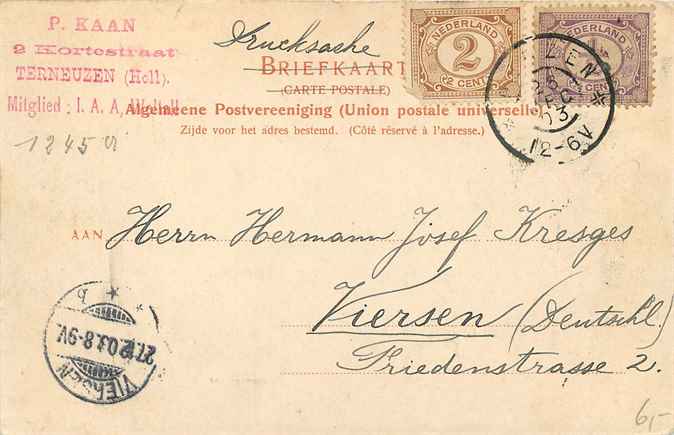 P. KAAN
2 Kortestraat
TERNEUZEN (Holl).
Mitglied: I. A. A.
1245
Drucksache
BRIEFKAART
(CARTE POSTALE)
Algemeene Postvereeniging (Union postale universelle)
Zijde voor het adres bestemd. (Côté réservé à l'adresse.)
NEDERLAND
2
2 CENT
NEDERLAND
CENT
DEC
03
12-6V
AAN Herrn Hermann Josef Kresges
Viersen (Deutschl.)
Friedenstrasse 2.
VIERSEN
27.12.03.8-9V.
b
6,-